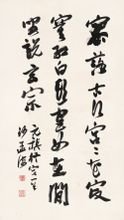 寥落古行宮〻花寂
寞紅白頭宮女在閒
坐說玄宗
元稹行宮一首
沙孟海